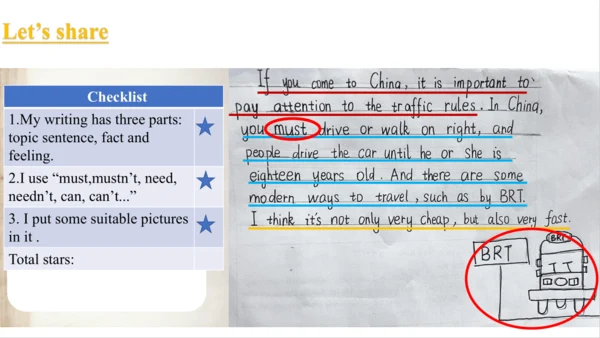 Let's share
Checklist
1.My writing has three parts:
topic sentence, fact and
feeling.
2.I use “must,mustn't, need,
needn't, can, can't...”
3. I put some suitable pictures
in it .
Total stars:
If you come to China, it is important to
pay attention to the traffic rules. In China,
you must drive or walk on right, and
people drive the car until he or she is
eighteen years old. And there are some
modern ways to travel, such as by BRT.
I think it's not only very cheap, but also very fast.
BRT
BRT